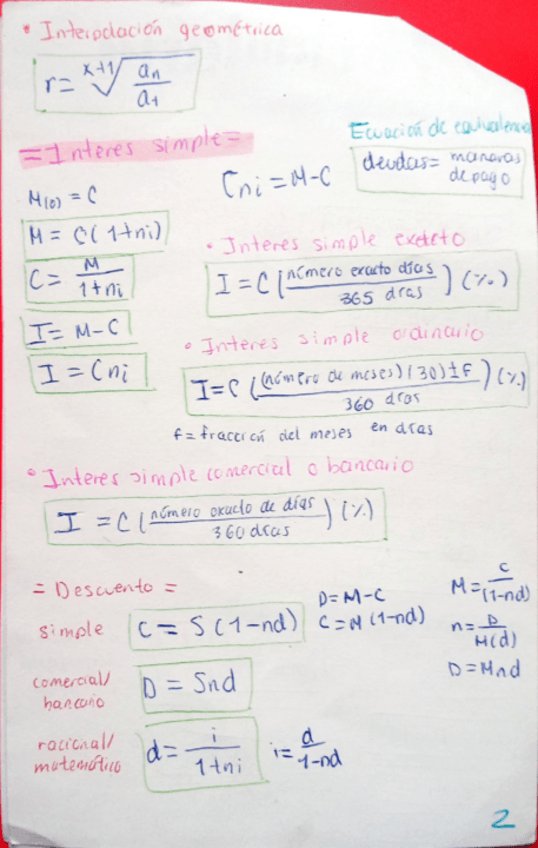 • Interpolación geométrica
r = x+1√(an/a1)
Ecuación de equivalencia
deudas = maneras de pago
= Interes simple =
M(0) = C
Cni = M-C
M = C(1+ni)
C = M/(1+ni)
I = M-C
I = Cni
• Interes simple exacto
I = C (número exacto días / 365 días) (%)
• Interes simple ordinario
I = C ((número de meses)(30) ± f / 360 días) (%)
f = fracción del meses en días
• Interes simple comercial o bancario
I = C (número exacto de días / 360 días) (%)
= Descuento =
simple C = S(1-nd)
D = M-C
C = M(1-nd)
M = C/(1-nd)
n = D/M(d)
D = Mnd
comercial/bancario D = Snd
racional/matemático d = i/(1+ni) i = d/(1-nd)
2